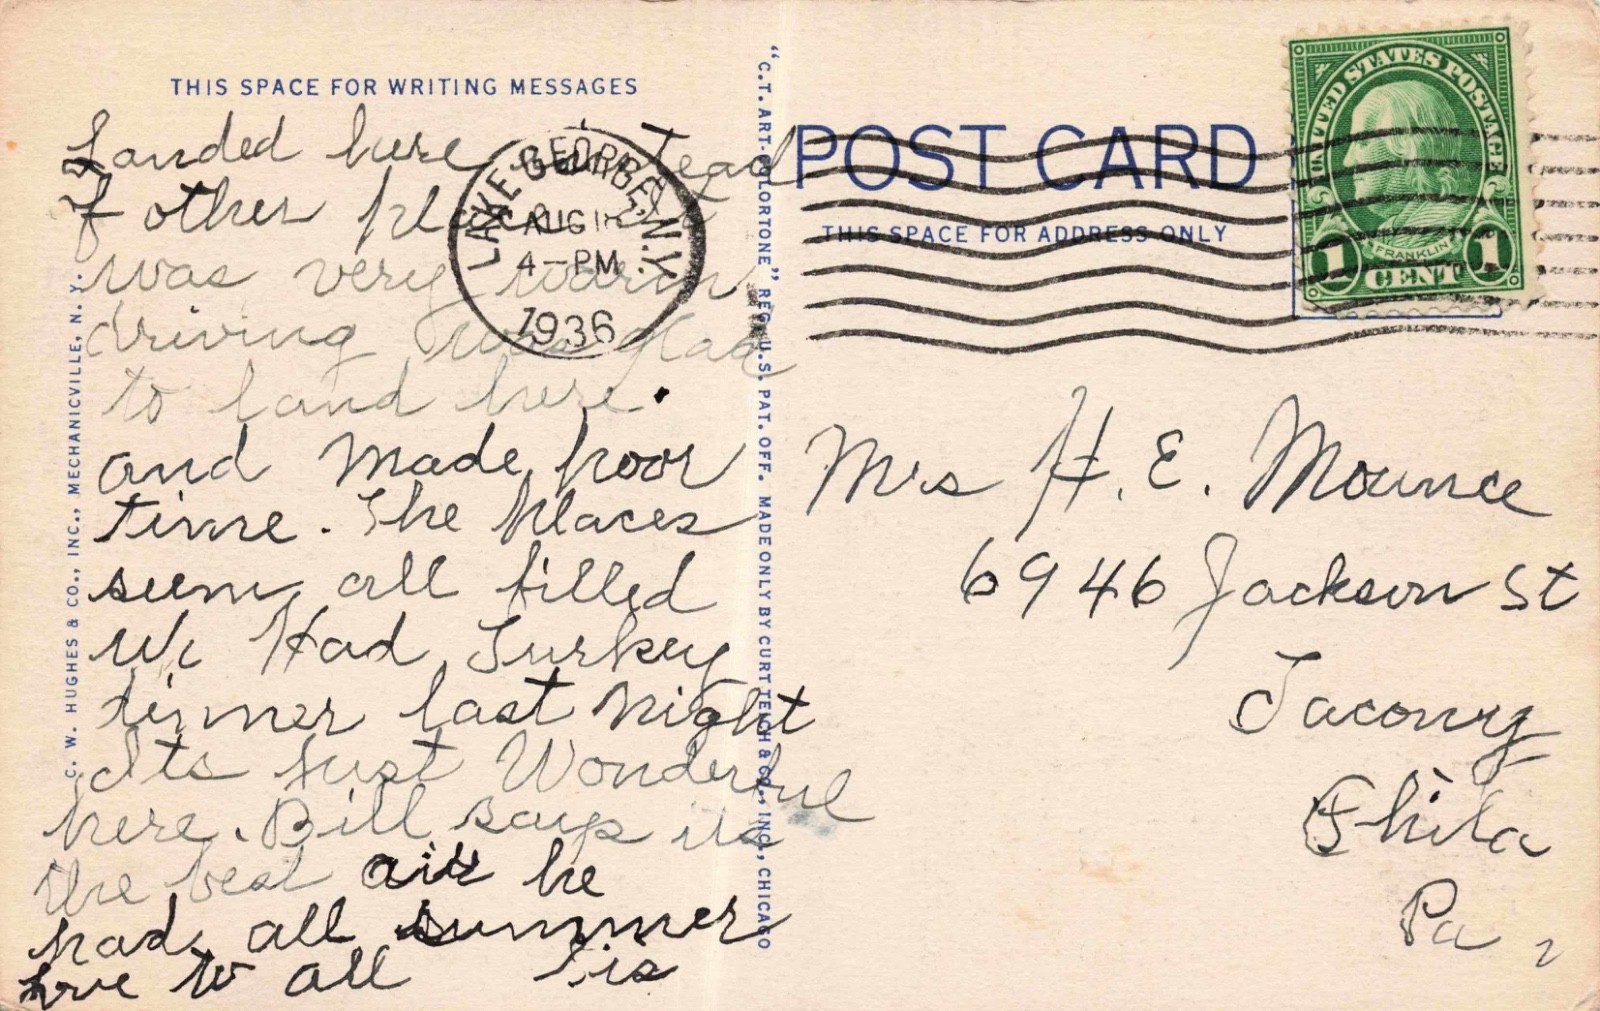 THIS SPACE FOR WRITING MESSAGES
Landed here instead
of other place it
was very warm
driving was glad
to land here.
and made poor
time. The places
seem all filled
We Had Turkey
dinner last night
Its just Wonderful
here. Bill says its
the best air he
had all summer
love to all Sis
LAKE GEORGE, N.Y.
AUG
4-PM
1936
C. W. HUGHES & CO., INC., MECHANICVILLE, N. Y.
"C.T. ART-COLORTONE" REG. U.S. PAT. OFF. MADE ONLY BY CURT TEICH & CO., INC., CHICAGO
POST CARD
THIS SPACE FOR ADDRESS ONLY
UNITED STATES POSTAGE
FRANKLIN
1 CENT 1
Mrs H. E. Mounce
6946 Jackson St
Tacony
Phila
Pa